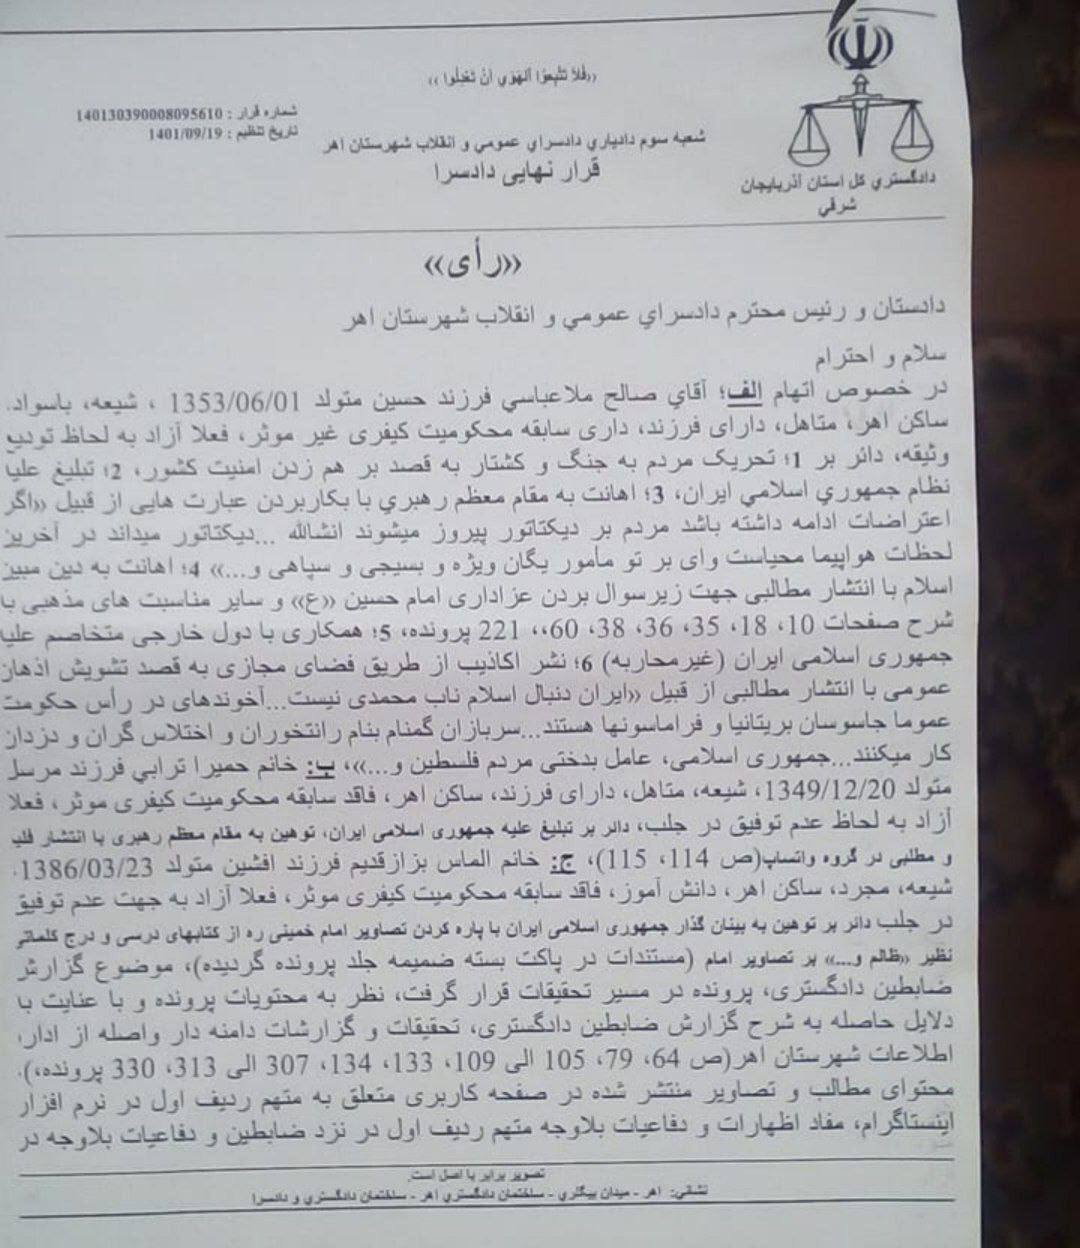 «فَلا تَتَّبِعوُا اَلهَوي اَنْ تَعْدِلُوا»
شماره قرار : 140130390008095610
تاریخ تنظیم : 1401/09/19
شعبه سوم دادیاري دادسراي عمومي و انقلاب شهرستان اهر
قرار نهایی دادسرا
دادگستري کل استان آذربایجان
شرقي
«رأی»
دادستان و رئیس محترم دادسراي عمومي و انقلاب شهرستان اهر
سلام و احترام
در خصوص اتهام الف؛ آقاي صالح ملاعباسي فرزند حسین متولد 1353/06/01 ، شیعه، باسواد،
ساکن اهر، متاهل، دارای فرزند، داری سابقه محکومیت کیفری غیر موثر، فعلا آزاد به لحاظ تودیع
وثیقه، دائر بر 1؛ تحریک مردم به جنگ و کشتار به قصد بر هم زدن امنیت کشور، 2؛ تبلیغ علیا
نظام جمهوري اسلامي ایران، 3؛ اهانت به مقام معظم رهبري با بکاربردن عبارت هایی از قبیل «اگر
اعتراضات ادامه داشته باشد مردم بر دیکتاتور پیروز میشوند انشالله ...دیکتاتور میداند در آخرین
لحظات هواپیما محیاست وای بر تو مأمور یگان ویژه و بسیجی و سپاهی و...» 4؛ اهانت به دین مبین
اسلام با انتشار مطالبی جهت زیرسوال بردن عزاداری امام حسین «ع» و سایر مناسبت های مذهبی با
شرح صفحات 10، 18، 35، 36، 38، 60،، 221 پرونده، 5؛ همکاری با دول خارجی متخاصم علیا
جمهوری اسلامی ایران (غیرمحاربه) 6؛ نشر اکاذیب از طریق فضای مجازی به قصد تشویش اذهان
عمومی با انتشار مطالبی از قبیل «ایران دنبال اسلام ناب محمدی نیست...آخوندهای در رأس حکومت
عموما جاسوسان بریتانیا و فراماسونها هستند...سربازان گمنام بنام رانتخوران و اختلاس گران و دزدان
کار میکنند...جمهوری اسلامی، عامل بدختی مردم فلسطین و...»، ب: خانم حمیرا ترابي فرزند مرسل
متولد 1349/12/20، شیعه، متاهل، دارای فرزند، ساکن اهر، فاقد سابقه محکومیت کیفری موثر، فعلا
آزاد به لحاظ عدم توفیق در جلب، دائر بر تبلیغ علیه جمهوری اسلامی ایران، توهین به مقام معظم رهبری با انتشار فلب
و مطلبی در گروه واتساپ(ص 114، 115)، ج: خانم الماس بزازقدیم فرزند افشین متولد 1386/03/23،
شیعه، مجرد، ساکن اهر، دانش آموز، فاقد سابقه محکومیت کیفری موثر، فعلا آزاد به جهت عدم توفیق
در جلب دائر بر توهین به بینان گذار جمهوری اسلامی ایران با پاره کردن تصاویر امام خمینی ره از کتابهای درسی و درج کلماتی
نظیر «ظالم و...» بر تصاویر امام (مستندات در پاکت بسته ضمیمه جلد پرونده گردیده)، موضوع گزارش
ضابطین دادگستری، پرونده در مسیر تحقیقات قرار گرفت، نظر به محتویات پرونده و با عنایت با
دلایل حاصله به شرح گزارش ضابطین دادگستری، تحقیقات و گزارشات دامنه دار واصله از ادار،
اطلاعات شهرستان اهر(ص 64، 79، 105 الی 109، 133، 134، 307 الی 313، 330 پرونده،)،
محتوای مطالب و تصاویر منتشر شده در صفحه کاربری متعلق به متهم ردیف اول در نرم افزار
اینستاگرام، مفاد اظهارات و دفاعیات بلاوجه متهم ردیف اول در نزد ضابطین و دفاعیات بلاوجه در
تصویر برابر با اصل است.
نشانی: اهر - میدان بیگلري - ساختمان دادگستري اهر - ساختمان دادگستري و دادسرا